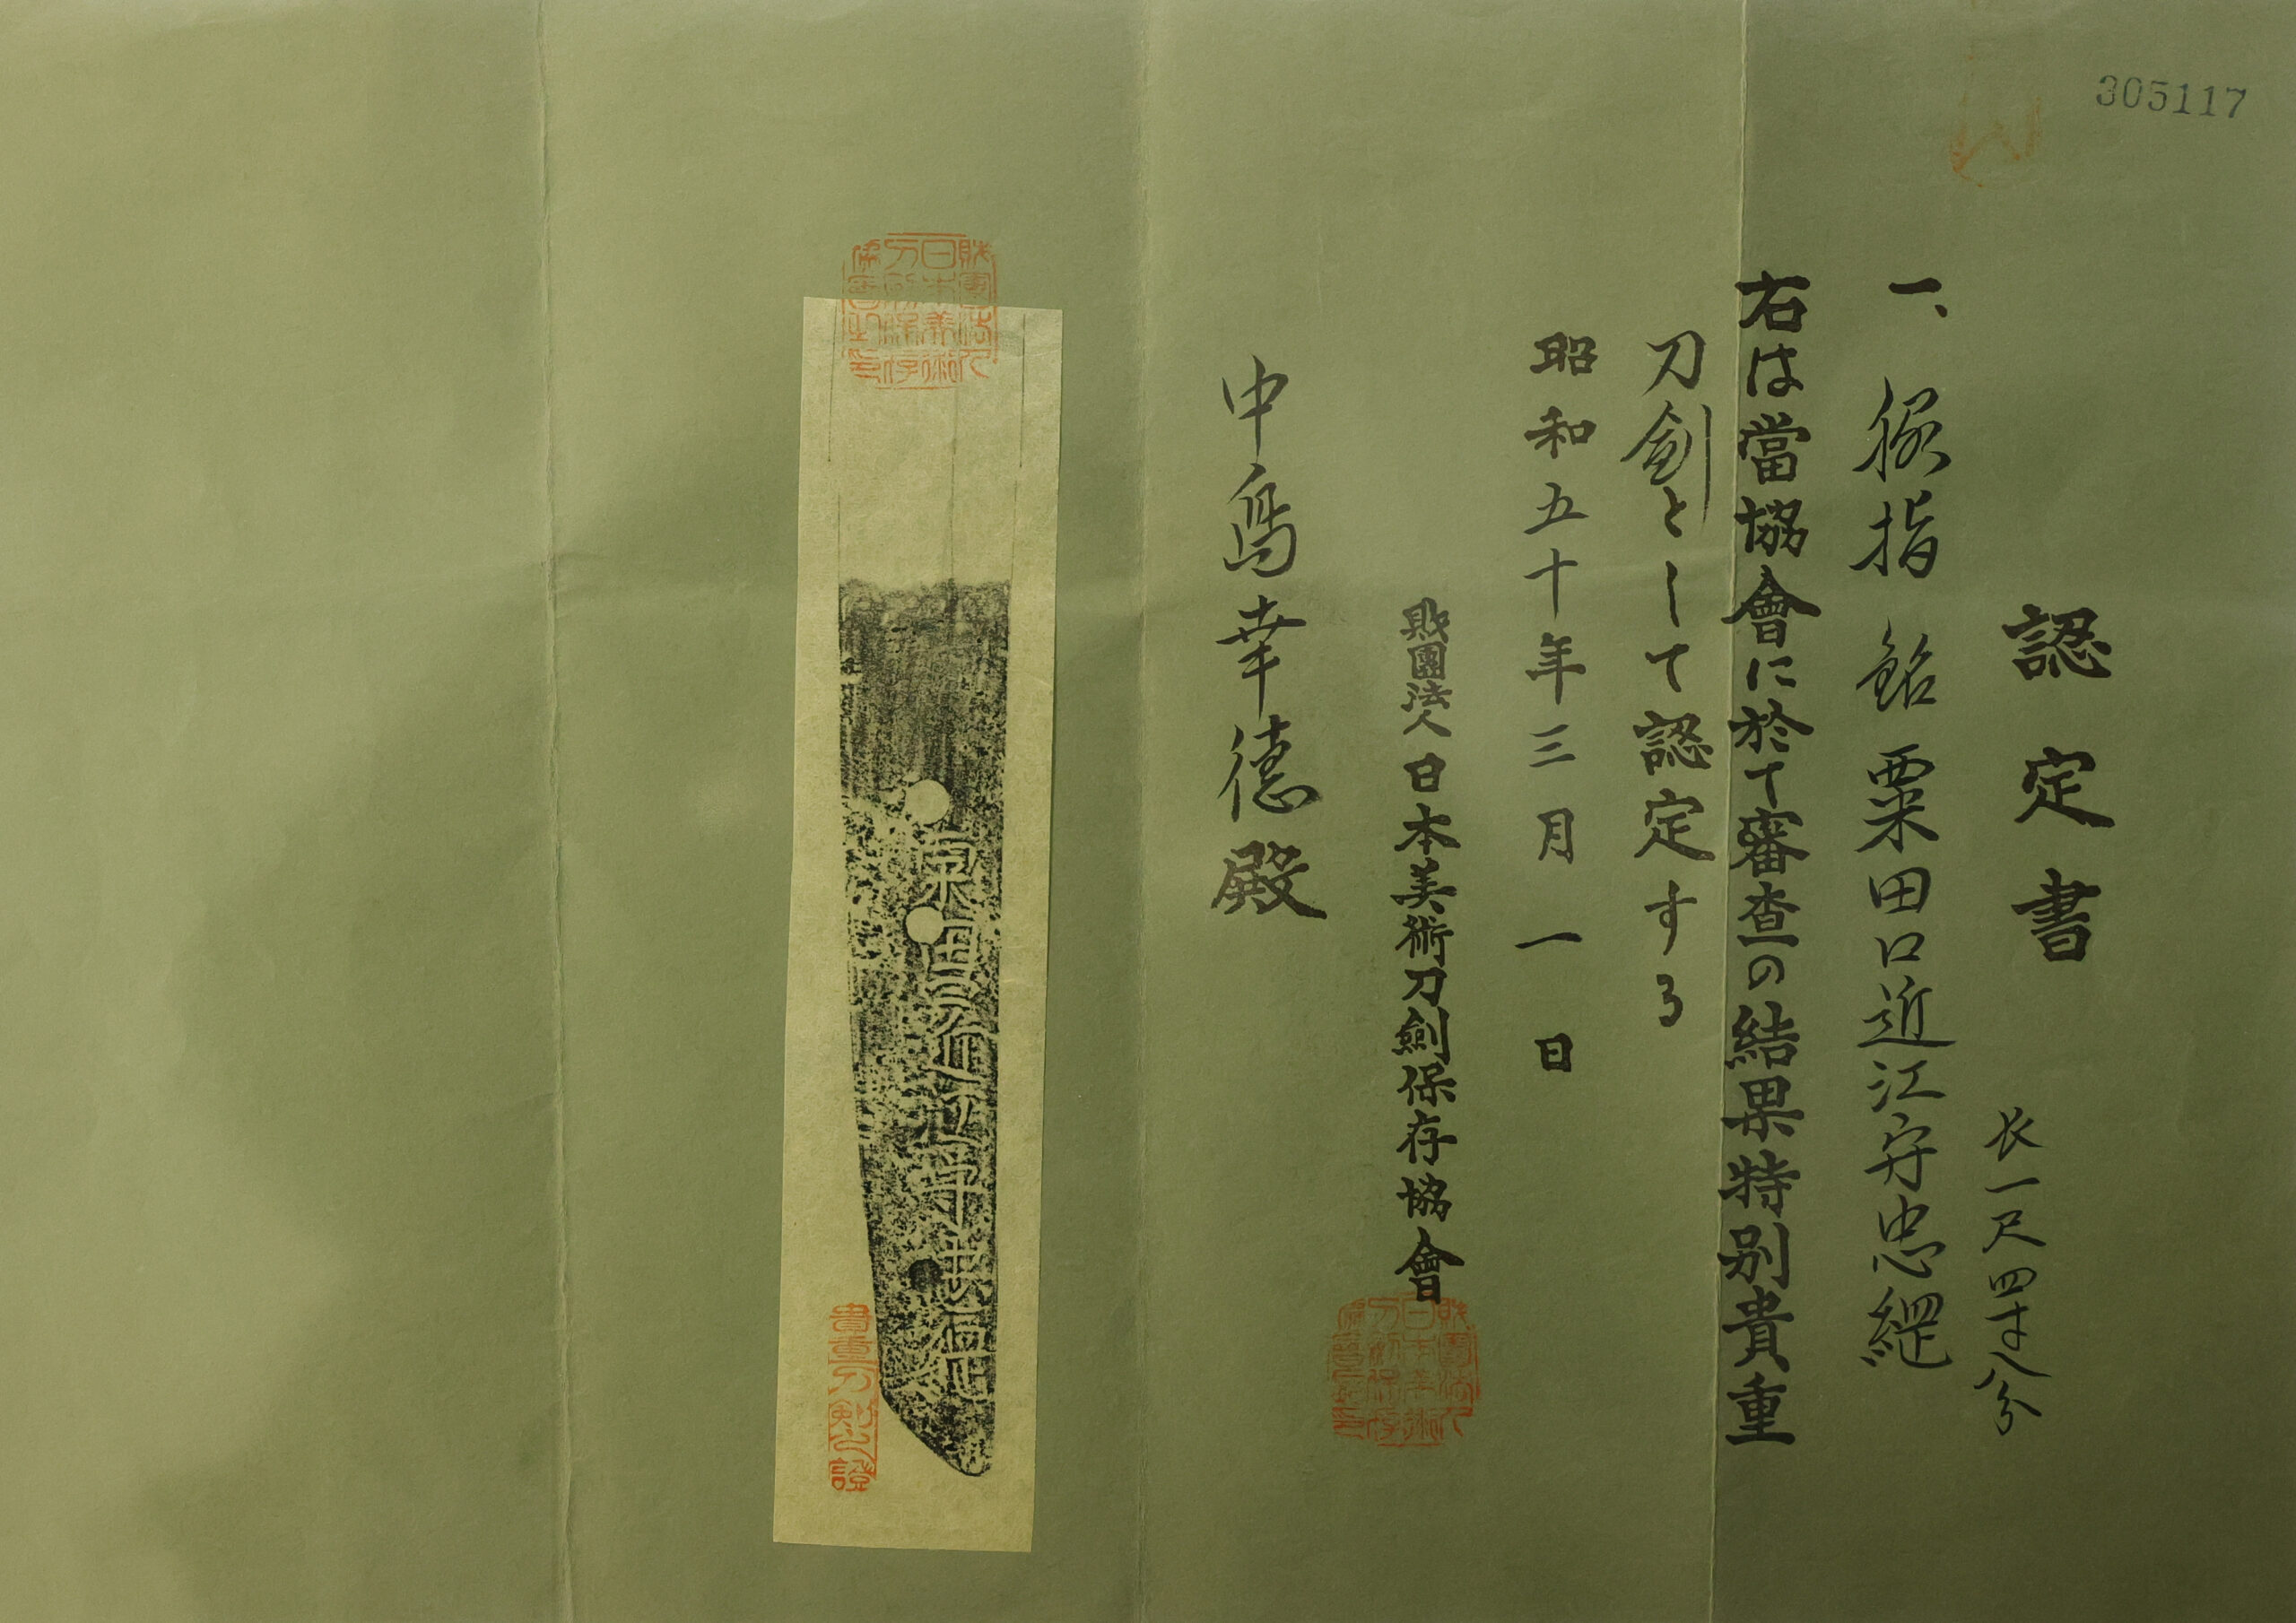 305117
認定書
一、脇指 銘 粟田口近江守忠綱
長一尺四寸八分
右は當協會に於て審査の結果特別貴重
刀劍として認定する
昭和五十年三月一日
財團法人日本美術刀劍保存協會
中島幸徳殿
粟田口近江守忠綱
貴重刀剣之證